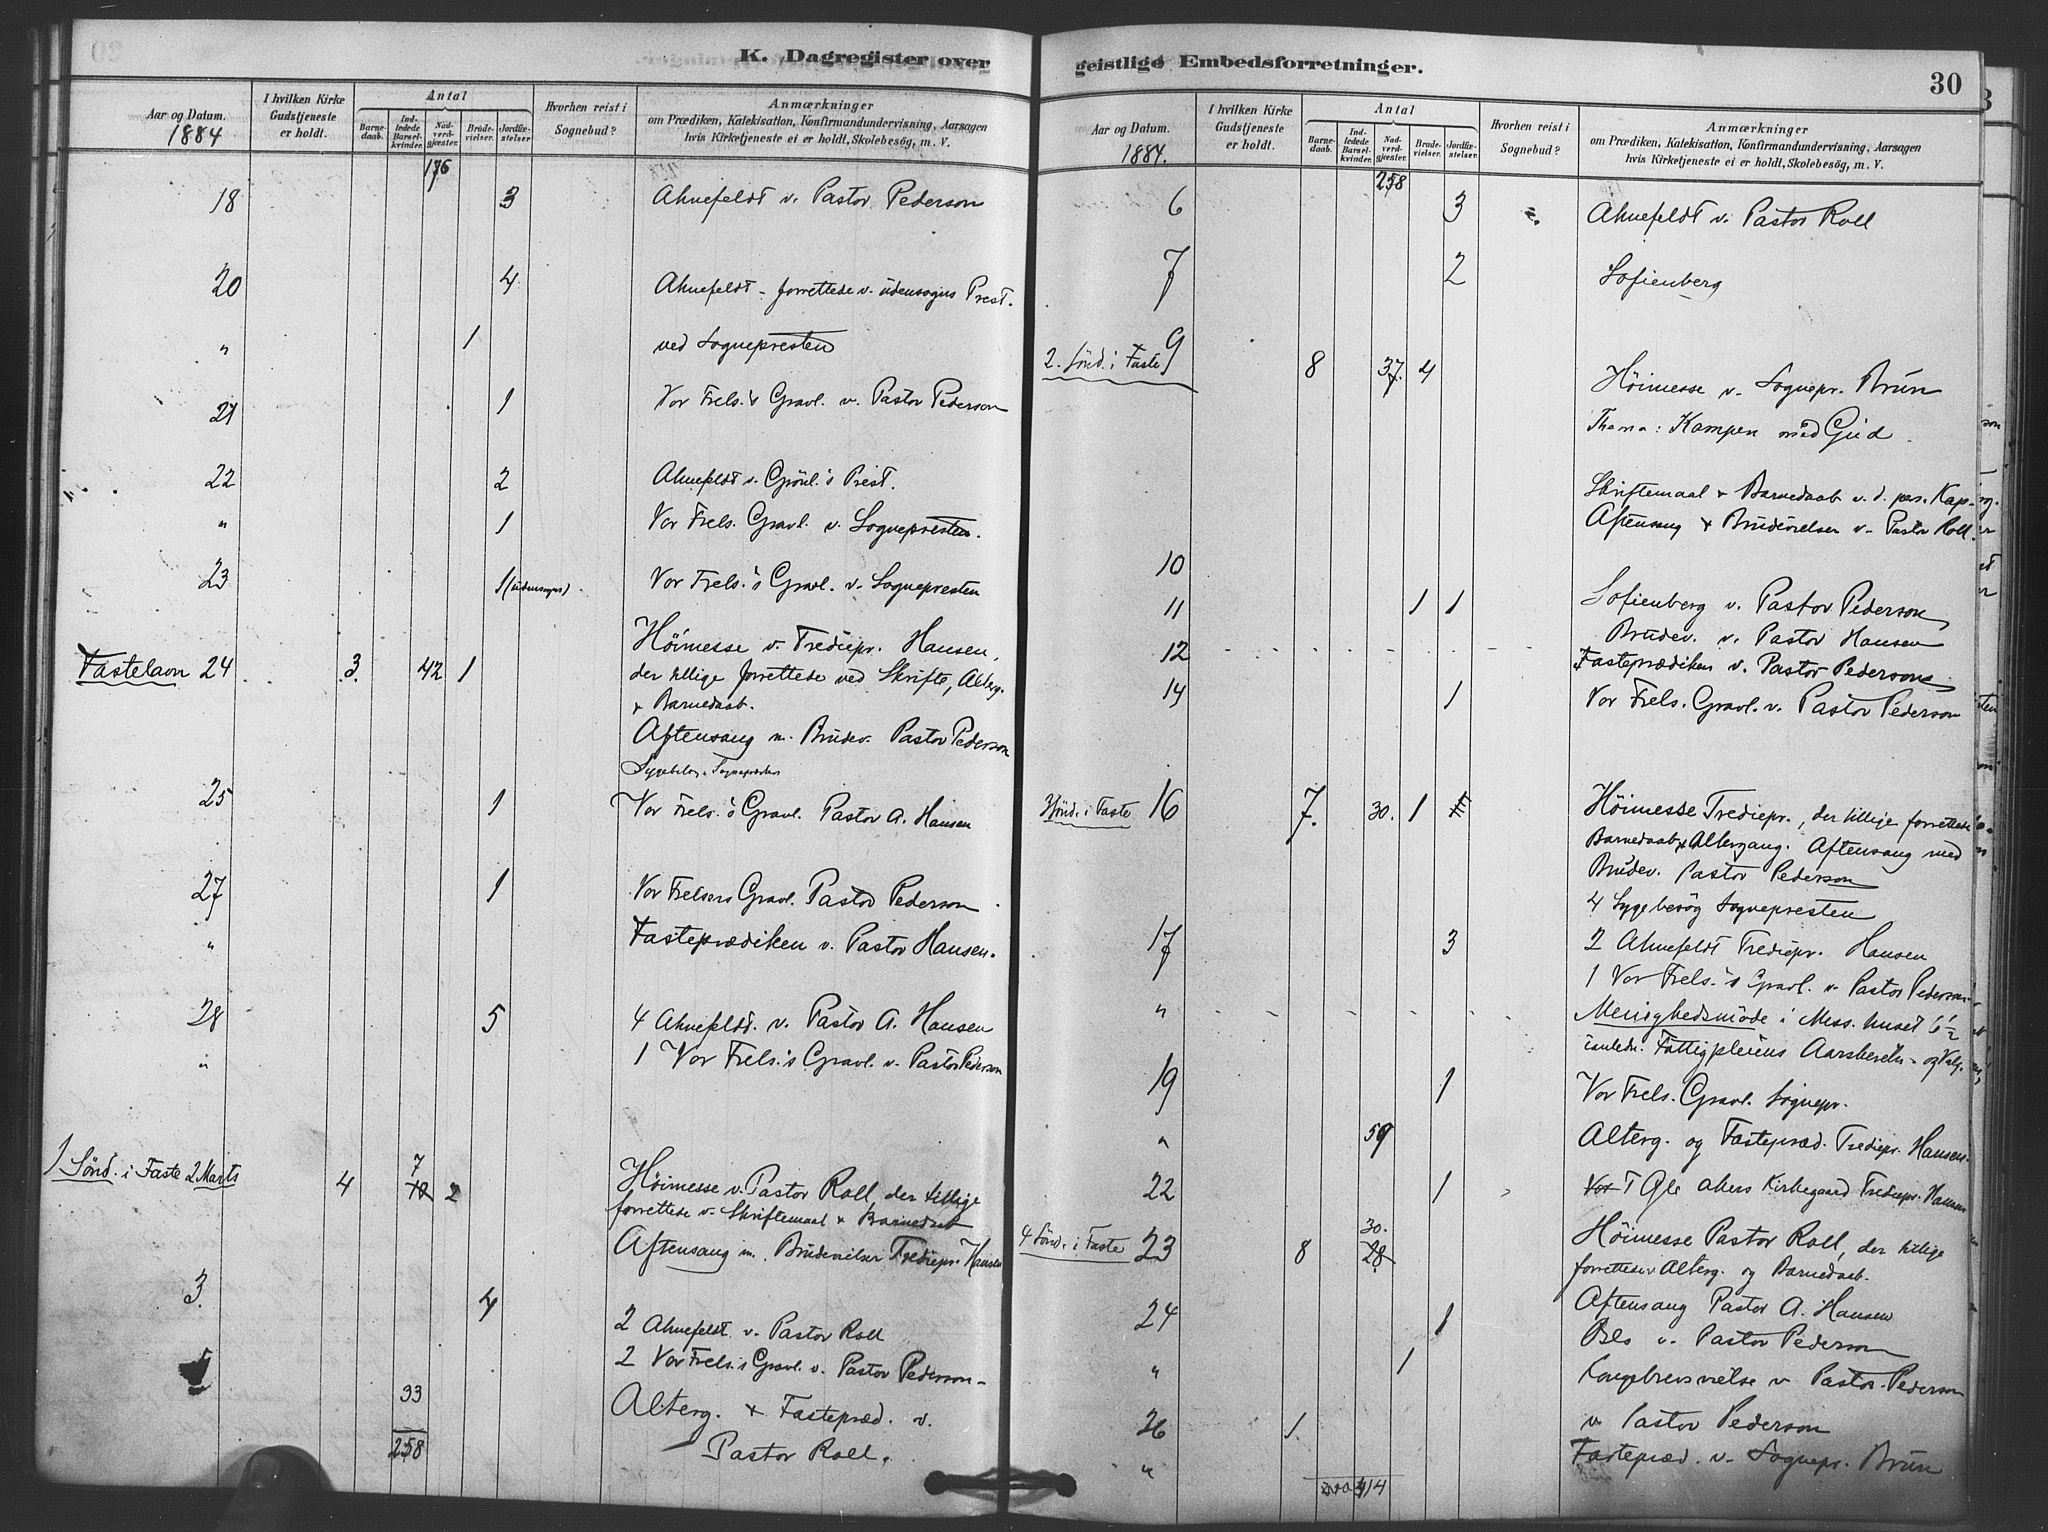 K. Dagregister over
Aar og Datum.
1884
I hvilken Kirke
Gudstjeneste
er holdt.
Antal
Barne-
daab.
Ind-
ledede
Barsel-
kvinder.
Nad-
verd-
gjæster.
Brude-
vielser.
Jordfæ-
stelser.
Hvorhen reist i
Sognebud?
Anmærkninger
om Prædiken, Katekisation, Konfirmandundervisning, Aarsagen
hvis Kirketjeneste ei er holdt, Skolebesög, m. V.
176
18 3 Ahnefeldt v. Pastor Pederson
20 4 Ahnefeldt - forrettede v. udensogns Prest.
" 1 ved Sognepresten
21 1 Vor Frels.'s Gravl. v. Pastor Pederson
22 2 Ahnefeldt v. Grönl.'s Prest.
" 1 Vor Frels. Gravl. v. Sognepresten.
23 1 (udensogns) Vor Frels.'s Gravl. v. Sognepresten
Höimesse v. Trediepr. Hansen,
Fastelavn 24 3. 42 1 der tillige forrettede ved Skrifte, Alterg.
+ Barnedaab.
Aftensang m. Brudev. Pastor Pederson
25 1 Vor Frels.'s Gravl. Pastor A. Hansen
27 1 Vor Frelsers Gravl. Pastor Pederson
" Fasteprædiken v. Pastor Hansen.
28 5 4 Ahnefeldt. v. Pastor A. Hansen
" 1 Vor Frels.'s Gravl. v. Pastor Pederson
1 Sönd. i Faste 2 Marts 4 7 2 Höimesse v. Pastor Roll, der tillige
forrettede v. Skriftemaal + Barnedaab
Aftensang m. Brudevielser Trediepr. Hansen
3. 4 2 Ahnefeldt v. Pastor Roll
2 Vor Frels.'s Gravl. v. Pastor Pederson-
33 Alterg. + Fastepræd. v.
258 Pastor Roll.
geistlige Embedsforretninger.
30
Aar og Datum.
1884.
I hvilken Kirke
Gudstjeneste
er holdt.
Antal
Barne-
daab.
Ind-
ledede
Barsel-
kvinder.
Nad-
verd-
gjæster.
Brude-
vielser.
Jordfæ-
stelser.
Hvorhen reist i
Sognebud?
Anmærkninger
om Prædiken, Katekisation, Konfirmandundervisning, Aarsagen
hvis Kirketjeneste ei er holdt, Skolebesög, m. V.
258
6 3 Ahnefeldt v. Pastor Roll
7 2 Sofienberg
2. Sönd. i Faste 9 8 37. 4 Höimesse v. Sognepr. Brun
Thema: Kampen med Gud.
Skriftemaal + Barnedaab v. d. pers. Kap.
Aftensang + Brudevielser v. Pastor Roll.
10
11 1 1 Sofienberg v. Pastor Pederson
Brudev. v. Pastor Hansen
12 Fasteprædiken v. Pastor Pederson
14 1 Vor Frels. Gravl. v. Pastor Pederson
3 Sönd. i Faste 16 7. 30. 1 Höimesse Trediepr., der tillige forrettede
Barnedaab + Altergang. Aftensang med
Brudev. Pastor Pederson
4 Sygebesög Sognepresten
17 3 2 Ahnefeldt Trediepr. Hansen
1 Vor Frels.'s Gravl. v. Pastor Pederson
" Menighedsmöde i Miss. huset
Fattigpleiens Aarsberetn. og Valg.
19 1 Vor Frels. Gravl. Sognepr.
" 59 Alterg. og Fastepræd. Trediepr. Hansen.
22 1 Gle akers Kirkegaard Trediepr. Hansen
4 Sönd. i Faste 23 8 30. 28 Höimesse Pastor Roll, der tillige
forrettede v. Alterg. og Barnedaab.
Aftensang Pastor A. Hansen
24 1 v. Pastor Pederson
" 1 Kongebrevsvielse v Pastor Pederson
26 1. v Pastor Pederson
" Fastepræd. v. Sognepr. Brun
414